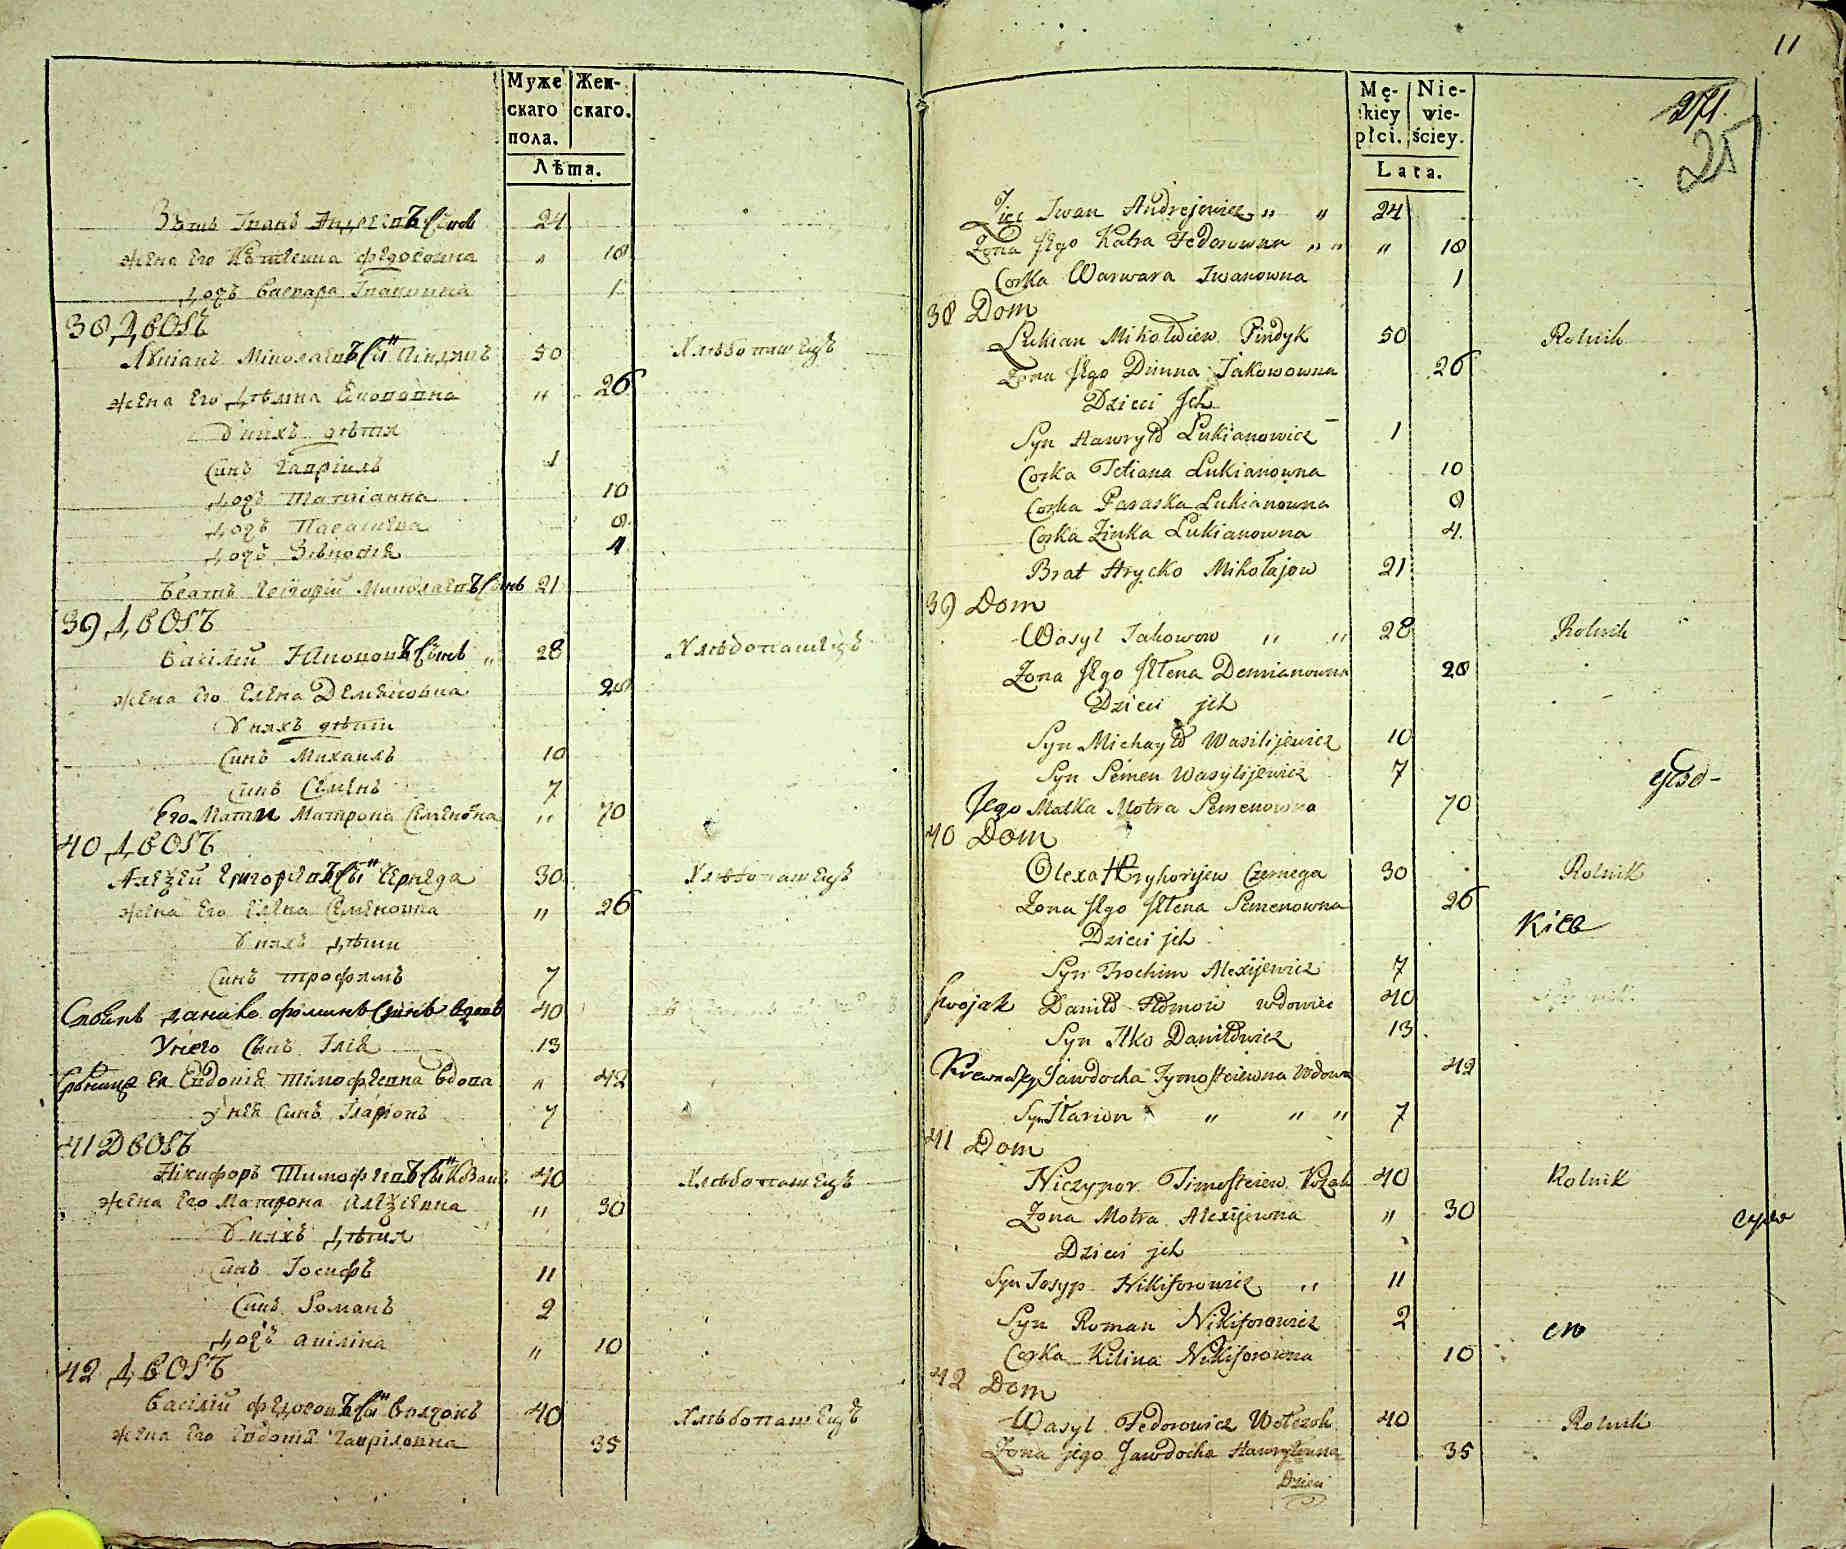 Муже
скаго
пола.
Жен-
скаго.
Лѣта.
Зять Іванъ Андреевъ Синъ 24
жена Его Катерина Федосовна „ 18
дочъ Варвара Івановна 1
38 Дворъ
Лукіанъ Миколаевъ Сы[нъ] Пиндикъ 50 Хлѣбопашецъ
жена Его Дѣмна Якововна „ 26
У нихъ дѣти
Синъ Гавріилъ 1
дочъ Татіанна 10
дочъ Параскева 9
дочъ Зѣновія 4
Братъ Григорій Миколаевъ Синъ 21
39 Дворъ
Василій Якововъ Синъ „ 28 Хлѣбопашецъ
жена Его Елена Демяновна 28
У нихъ дѣти
Синъ Михаилъ 10
Синъ Семенъ 7
Его Мати Матрона Семеновна „ 70
40 Дворъ
Алеѯей Григориевъ Сы[нъ] Чернега 30 Хлѣбопашецъ
жена Его Елена Семеновна „ 26
У нихъ дѣти
Синъ Трофимъ 7
Своякъ Данило Фоминъ Синъ вдовъ 40
У него Сынъ Ілія 13
Евдокія Тимофеевна вдова „ 42
У нея Синъ Іларіонъ 7
41 Дворъ
Никифоръ Тимофеевъ Сы[нъ] Козакъ 40 Хлѣбопашецъ
жена Его Матрона Алеѯіевна „ 30
У нихъ дѣти
Синъ Іосифъ 11
Синъ Романъ 2
дочъ Акилина „ 10
42 Дворъ
Василій Федоровъ Сы[нъ] Волчокъ 40 Хлѣбопашецъ
жена Его Евдокія Гавріловна 35
11
Mę-
kiey
płci.
Nie-
wie-
ściey.
Lata.
271.
25
Zięć Iwan Andrejewicz „ „ 24
Żona Jego Katra Fedorowna „ „ „ 18
Corka Warwara Iwanowna 1
38 Dom
Łukian Mikołaiew Pindyk 50 Rolnik
Żona Jego Dimna Jakowowna 26
Dzieci Jch
Syn Hawryło Łukianowicz 1
Corka Tetiana Łukianowna 10
Corka Paraska Łukianowna 9
Corka Zinka Łukianowna 4.
Brat Hrycko Mikołajow 21
39 Dom
Wasyl Jakowow „ „ 28 Rolnik
Żona Jego Jlena Demianowna 28
Dzieci jch
Syn Michayło Wasilijewicz 10
Syn Semen Wasylijewicz 7
Jego Matka Motra Semenowna 70
40 Dom
Olexa Hryhorijew Czernega 30 Rolnik
Żona Jego Jlena Semenowna 26
Kiев
Dzieci jch
Syn Trochim Alexijewicz 7
Swojak Daniło Homow wdowiec 40
Syn Ilko Daniłowicz 13
Krewna Jey Jawdocha Tymofteiewna Wdowa 42
Syn Ilarion „ „ „ 7
41 Dom
Niczypor Timofteiew Kozak 40 Rolnik
Żona Motra Alexijewna „ 30
Dzieci jch
Syn Josyp Nikiforowicz „ 11
Syn Roman Nikiforowicz 2
Corka Kilina Nikiforowna 10
42 Dom
Wasyl Fedorowicz Wołczok 40 Rolnik
Żona Jego Jawdocha Hawryłowna 35
Dzieci